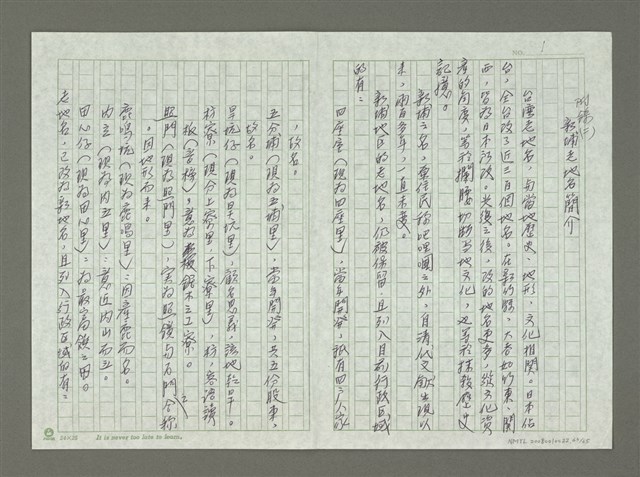 NO. 1
附錄(二)
新埔老地名簡介
台灣老地名,與當地歷史、地形、文化相關。日本佔
台,全台改了近三百個地名。在新竹縣,大者如竹東、關
西,皆為日本所改。光復之後,改的地名更多,從文化資
產的角度,等於攔腰切斷當地文化,也等於抹殺歷史
記憶。
新埔之名,原住民稱吧哩嘓之外,自清代文獻出現以
來,兩百多年,一直未變。
新埔地區的老地名,仍被保留,且列入目前行政區域
的有:
四座屋(現為四座里),當年開發,祇有四戶人家
,故名。
五分埔(現為五埔里),當年開發,共五份股東,
故名。
旱坑仔(現為旱坑里),顧名思義,該地乾旱。
枋寮(現分上寮里、下寮里),枋,客語讀
板(音棒),意為鋸木之工寮。
照門(現為照門里),實為照鏡與石門之合稱
。因地形而來。
鹿鳴坑(現為鹿鳴里):因產鹿而名。
內立(現為內立里):意近內山而立。
田心仔(現為田心里):為最高鎮之田。
老地名,已改為新地名,且列入行政區域的有:
24×25
It is never too late to learn.